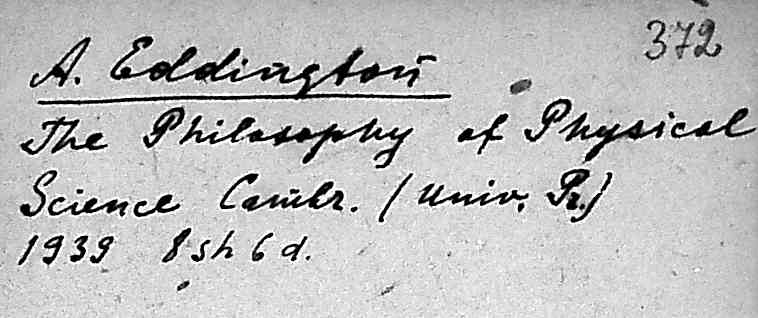 372
A. Eddington
The Philosophy of Physical
Science Cambr. (Univ. Pr.)
1939 8 sh 6 d.